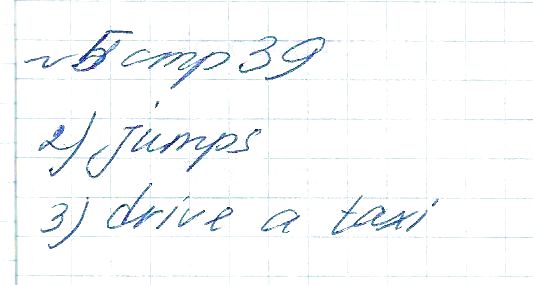 №5 стр 39
2) jumps
3) drive a taxi